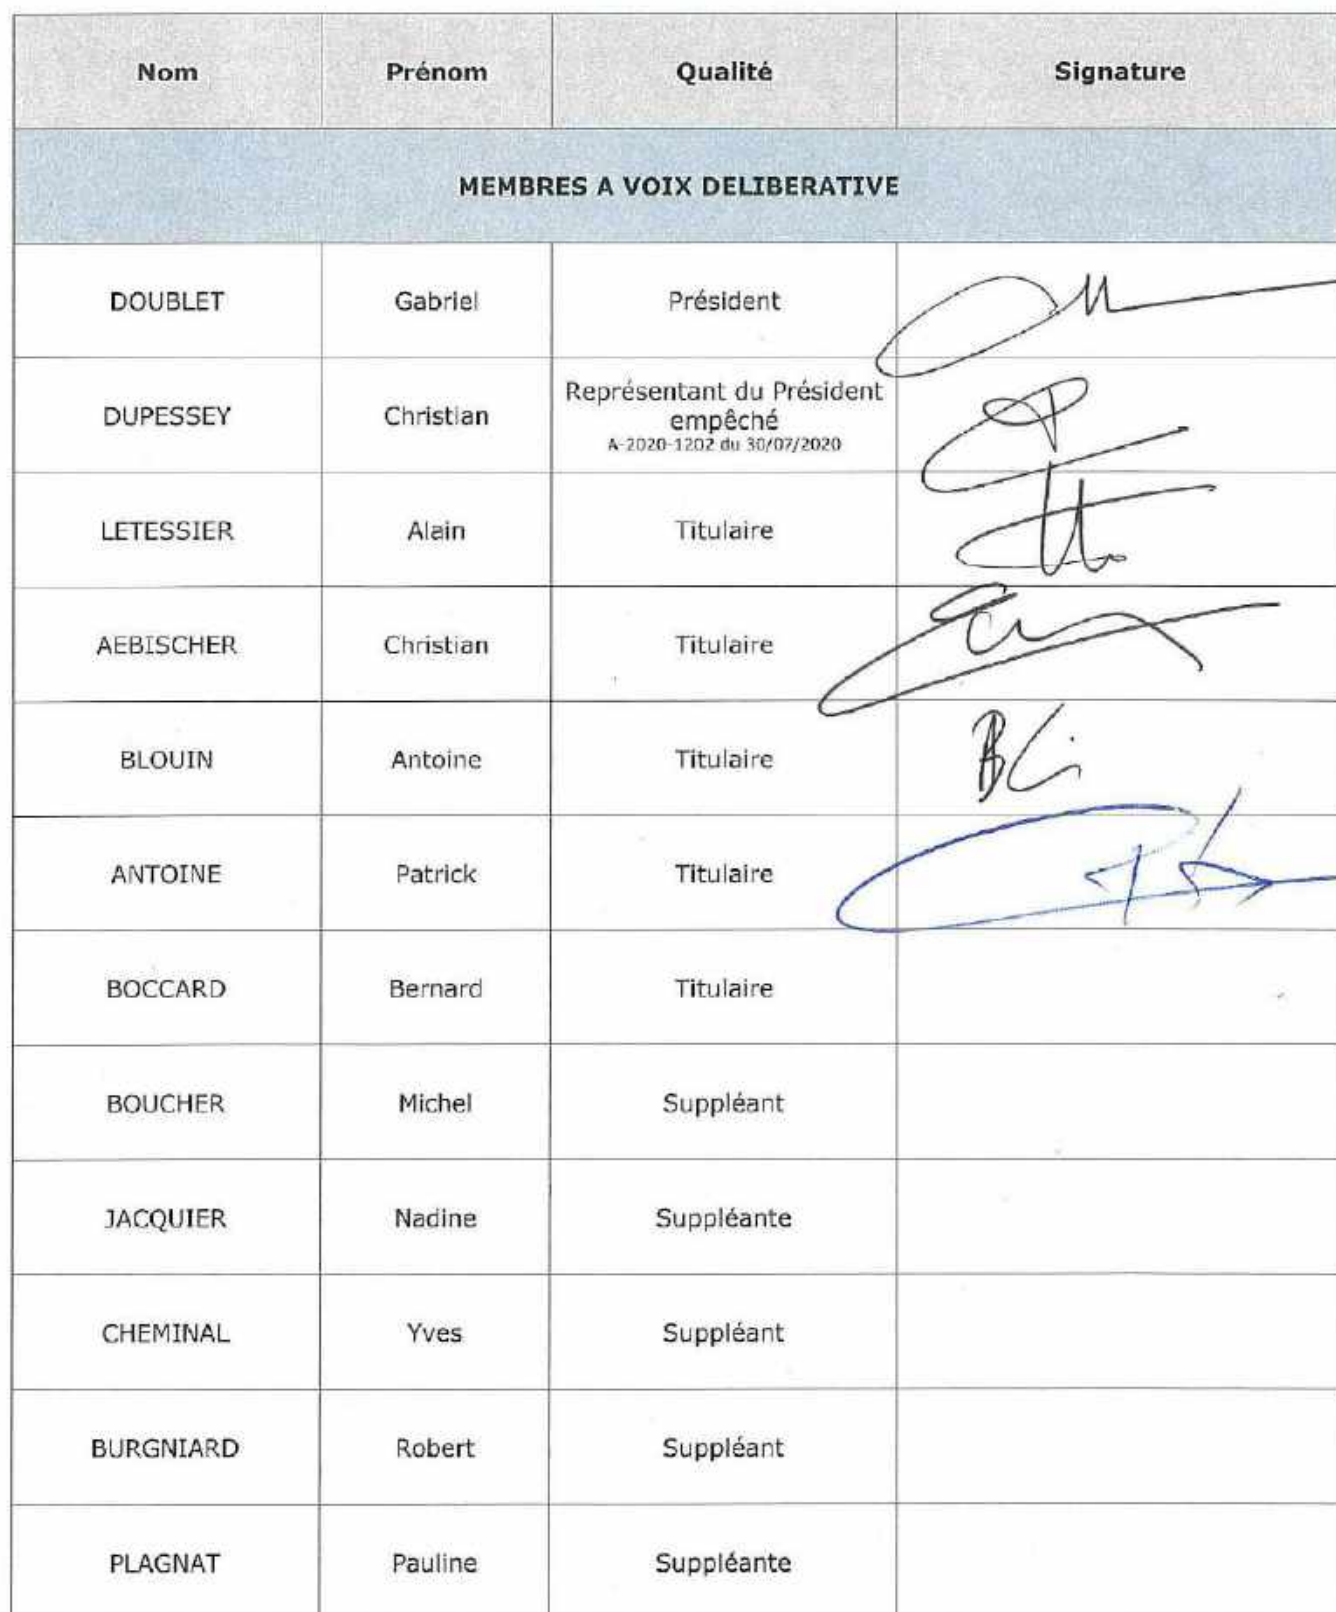 Nom Prénom Qualité Signature
MEMBRES A VOIX DELIBERATIVE
DOUBLET Gabriel Président
DUPESSEY Christian Représentant du Président
empêché
A-2020-1202 du 30/07/2020
LETESSIER Alain Titulaire
AEBISCHER Christian Titulaire
BLOUIN Antoine Titulaire
ANTOINE Patrick Titulaire
BOCCARD Bernard Titulaire
BOUCHER Michel Suppléant
JACQUIER Nadine Suppléante
CHEMINAL Yves Suppléant
BURGNIARD Robert Suppléant
PLAGNAT Pauline Suppléante